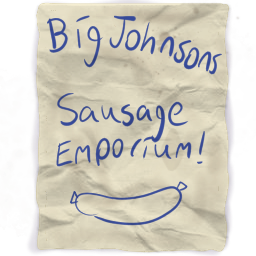 Big Johnsons
Sausage
Emporium!